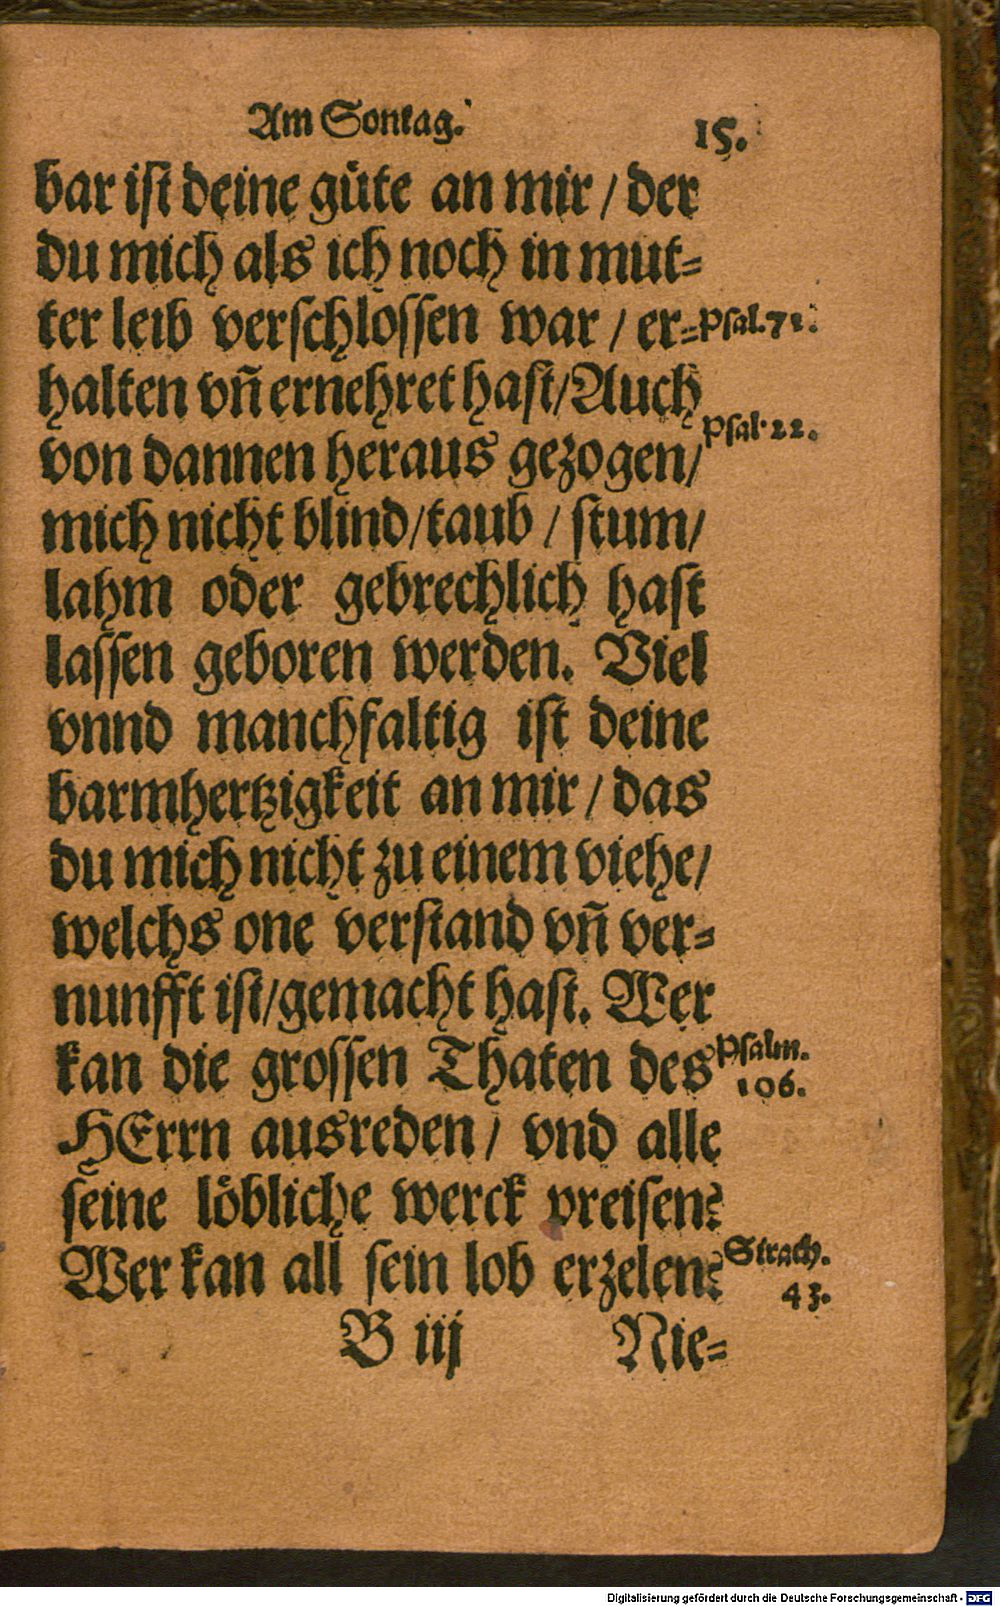 Am Sontag. 15.
bar ist deine güte an mir / der
du mich als ich noch in mut=
ter leib verschlossen war / er= Psal. 71.
halten vñ ernehret hast/Auch
Psal. 22.
von dannen heraus gezogen/
mich nicht blind/taub / stum/
lahm oder gebrechlich hast
lassen geboren werden. Viel
vnnd manchfaltig ist deine
barmhertzigkeit an mir / das
du mich nicht zu einem viehe/
welchs one verstand vñ ver=
nunfft ist/gemacht hast. Wer
kan die grossen Thaten des Psalm.
106.
HErrn ausreden / vnd alle
seine löbliche werck preisen?
Wer kan all sein lob erzelen? Sirach.
43.
B iij Nie=
Digitalisierung gefördert durch die Deutsche Forschungsgemeinschaft - DFG